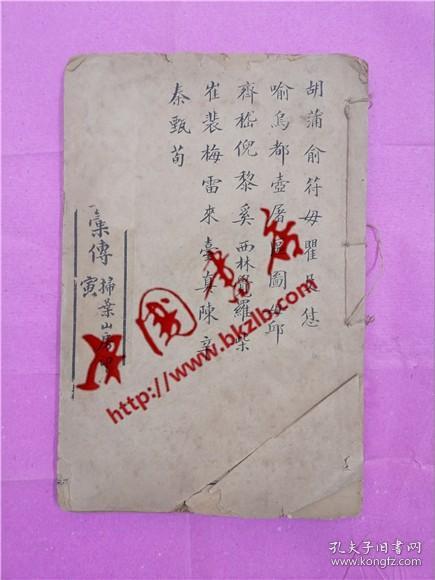 胡蒲俞符毋瞿
喻烏都壺屠圖邱
齊嵇倪黎奚西林羅柴
崔裴梅雷來真陳辛
秦甄荀
集傳
寅
掃葉山房
中國書店
http://www.bkzlb.com
孔夫子旧书网
kongfz.com